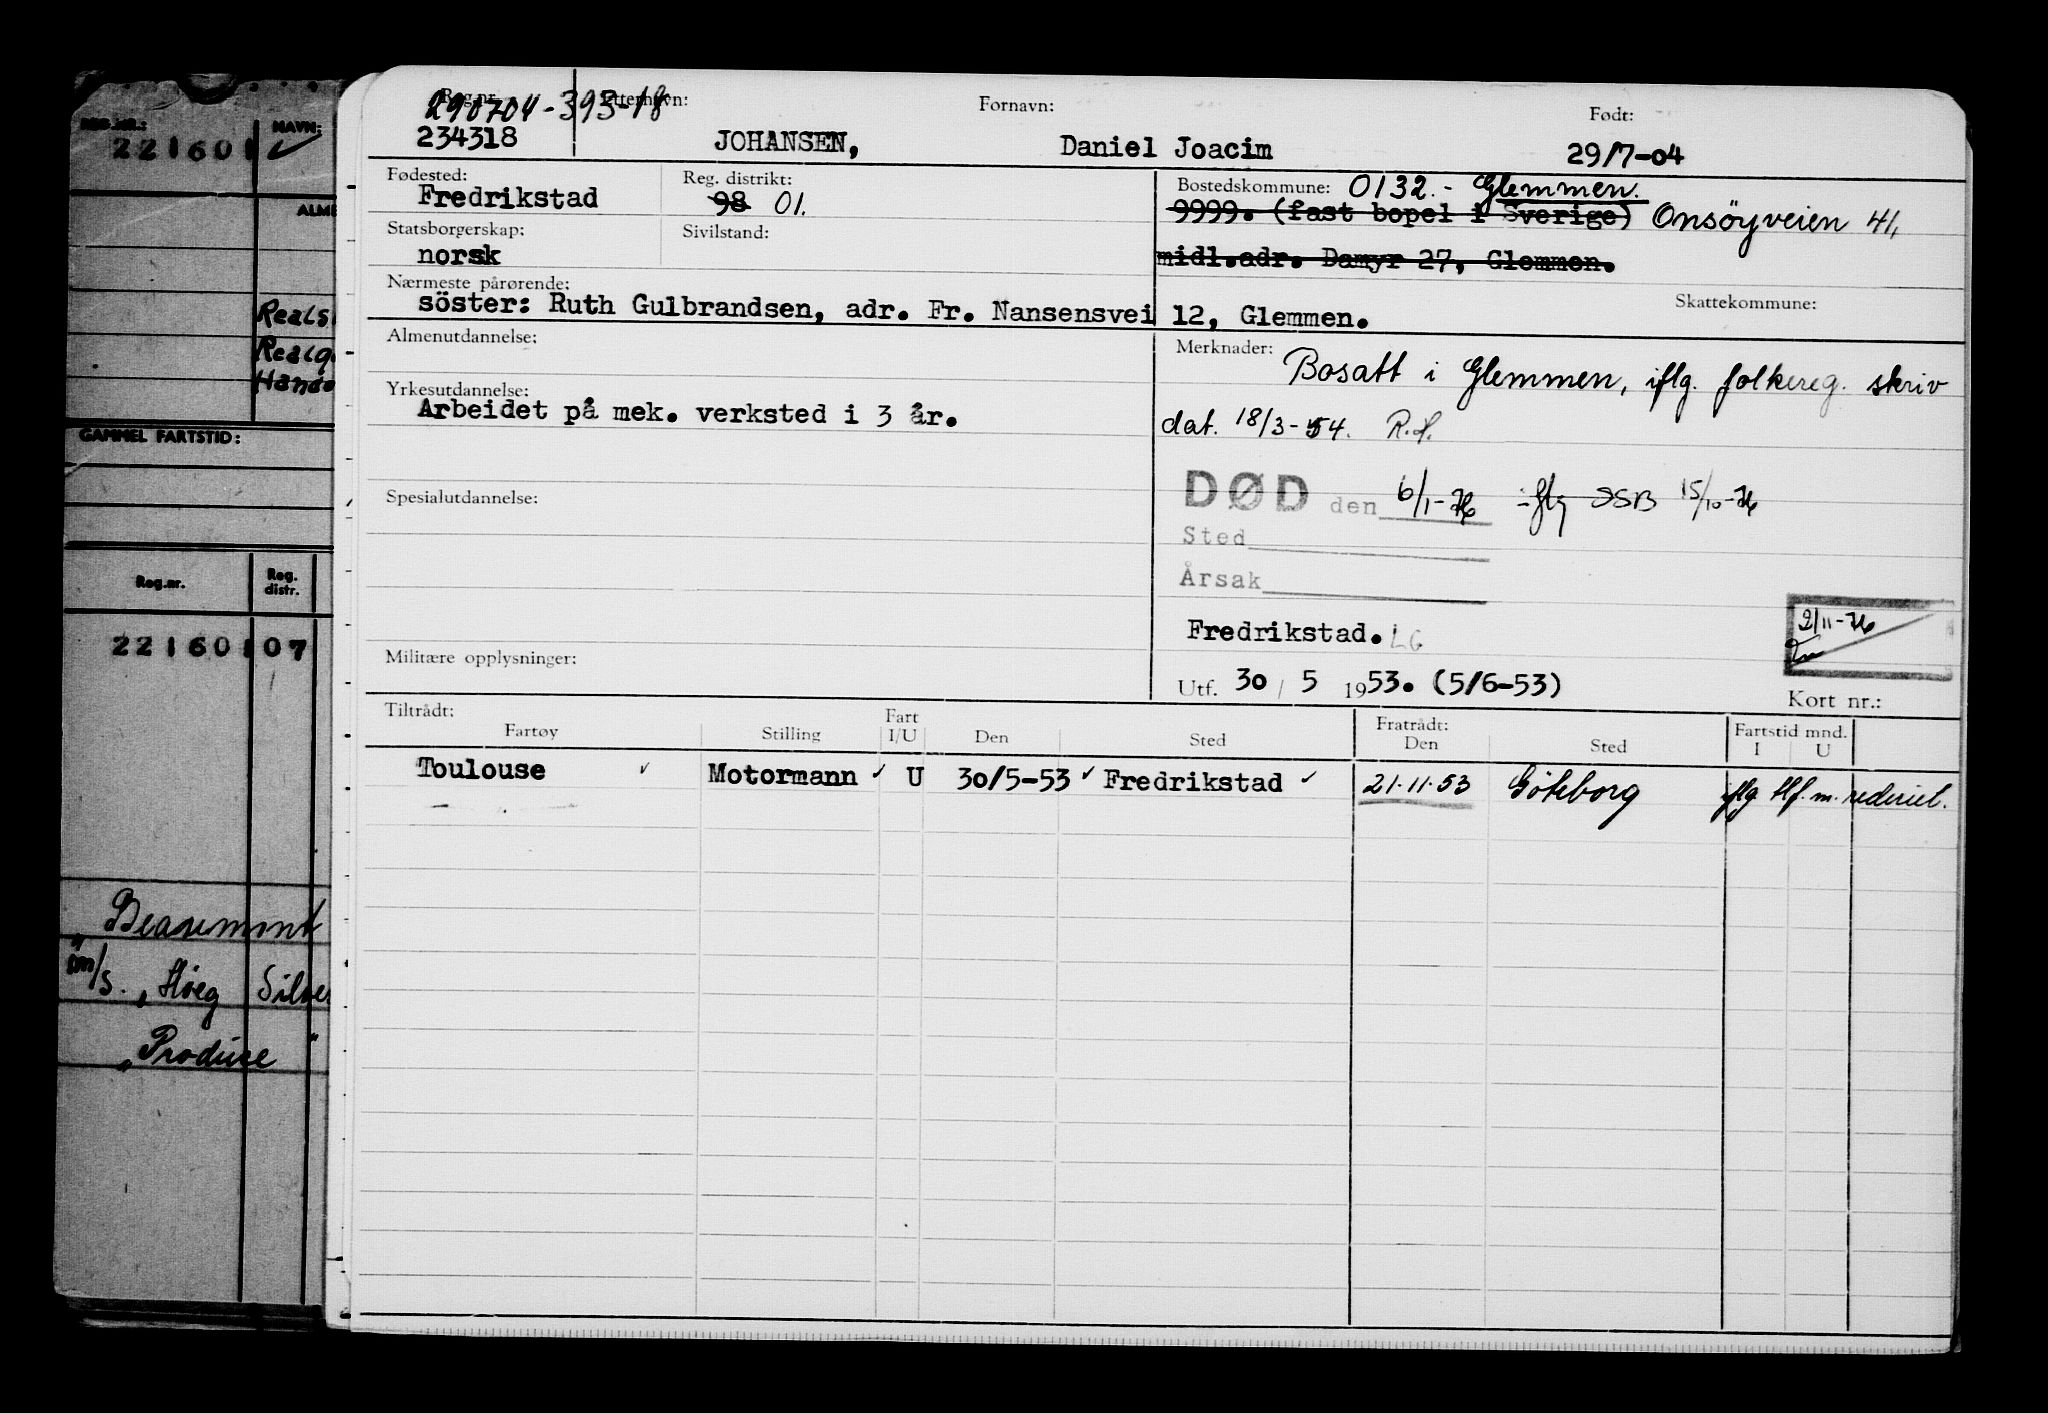 REG.NR.: NAVN:
221601
ALME
Reals
Realg
Hande
GAMMEL FARTSTID:
Reg.nr. Reg. distr.
221601 07
Beaumont
m/s. "Höeg Silve
"Produce"
290704-393-18
Reg.nr. Etternavn: Fornavn: Født:
234318 JOHANSEN, Daniel Joacim 29/7-04
Fødested: Reg. distrikt: Bostedskommune: 0132.- Glemmen.
Fredrikstad 98 01. 9999. (fast bopel i Sverige) Onsöyveien 41,
Statsborgerskap: Sivilstand:
norsk midl.adr. Damyr 27, Glemmen.
Nærmeste pårørende: Skattekommune:
söster: Ruth Gulbrandsen, adr. Fr. Nansensvei 12, Glemmen.
Almenutdannelse: Merknader:
Bosatt i Glemmen, iflg. folkereg. skriv
Yrkesutdannelse:
Arbeidet på mek. verksted i 3 år. dat. 18/3-54. R.H.
Spesialutdannelse: DØD den 6/1-76 iflg SSB 15/10-76
Sted
Årsak
Fredrikstad. LG 2/11-76
Militære opplysninger:
Utf. 30/5 1953. (5/6-53)
Kort nr.:
Tiltrådt: Fratrådt: Fartstid mnd.
Fartøy Stilling Fart I/U Den Sted Den Sted I U
Toulouse Motormann U 30/5-53 Fredrikstad 21.11.53 Göteborg iflg tlf. m. rederiet.